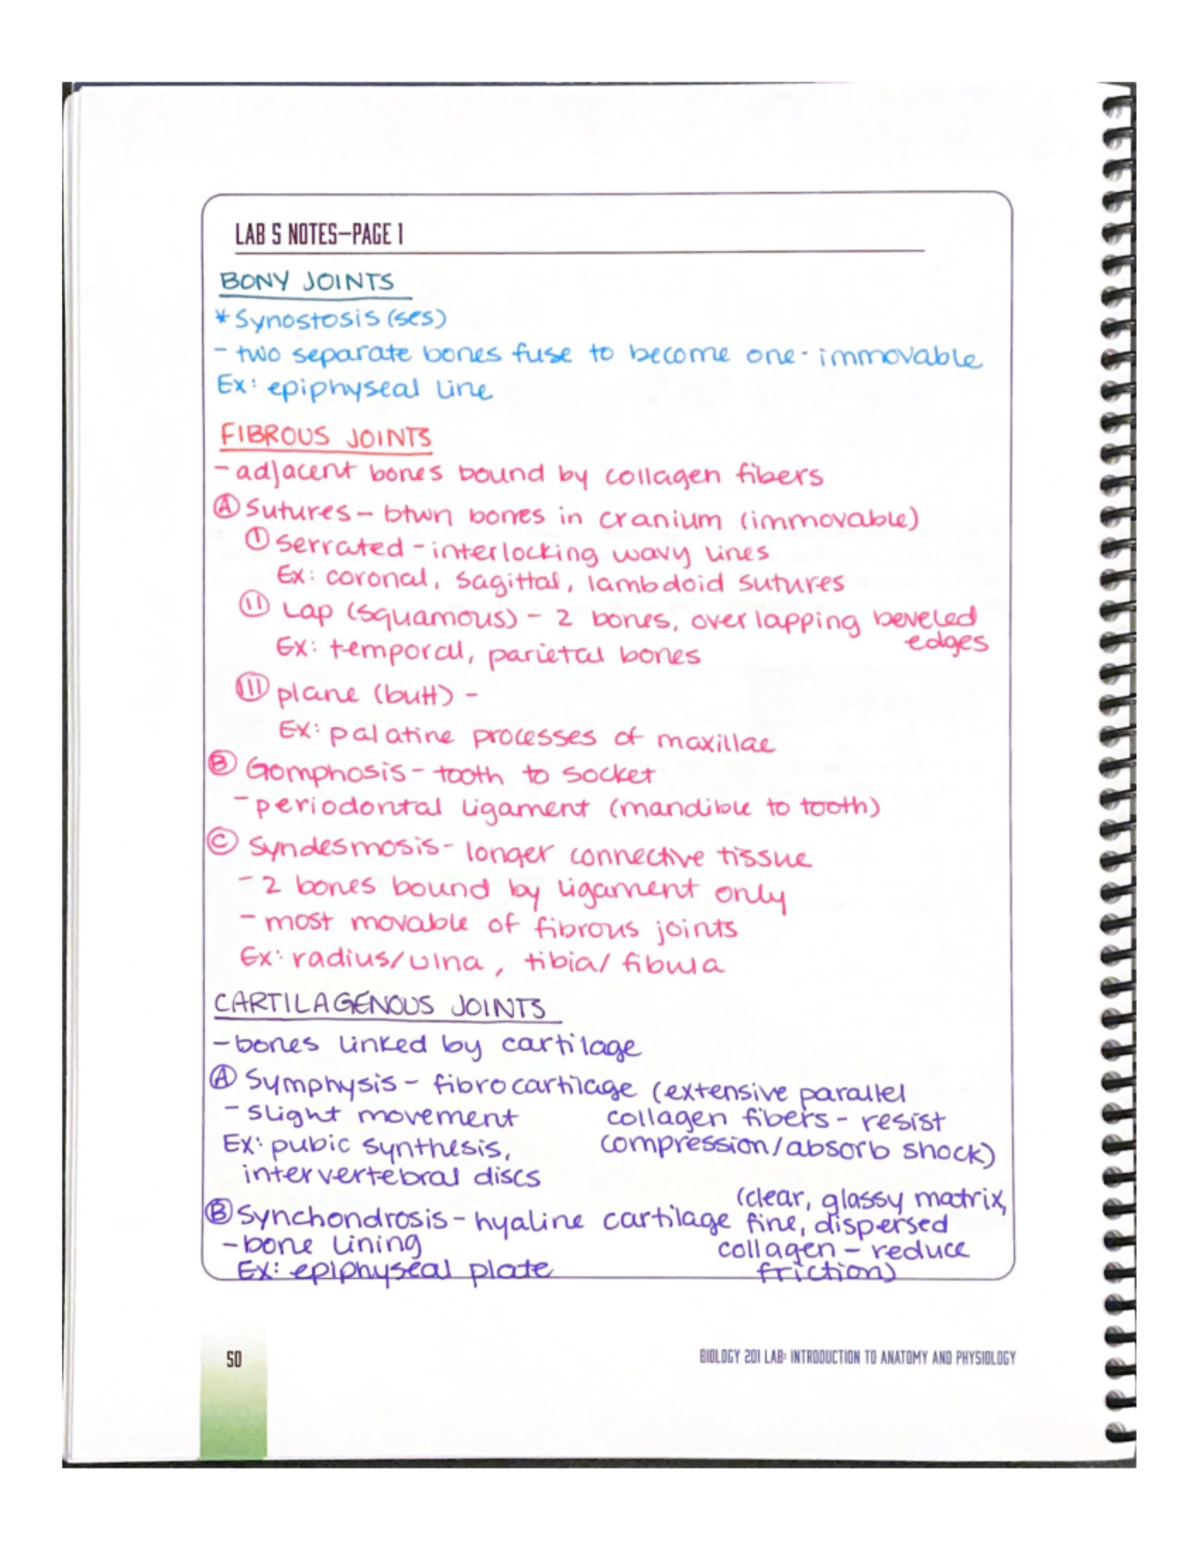 LAB 5 NOTES—PAGE 1
BONY JOINTS
* Synostosis (ses)
- two separate bones fuse to become one - immovable
Ex: epiphyseal line
FIBROUS JOINTS
- adjacent bones bound by collagen fibers
Ⓐ Sutures - btwn bones in cranium (immovable)
Ⓘ serrated - interlocking wavy lines
Ex: coronal, sagittal, lambdoid sutures
(II) Lap (squamous) - 2 bones, overlapping beveled
edges
Ex: temporal, parietal bones
(III) plane (butt) -
Ex: palatine processes of maxillae
Ⓑ Gomphosis - tooth to socket
- periodontal ligament (mandible to tooth)
Ⓒ Syndesmosis - longer connective tissue
- 2 bones bound by ligament only
- most movable of fibrous joints
Ex: radius/ulna, tibia/fibula
CARTILAGENOUS JOINTS
- bones linked by cartilage
Ⓐ Symphysis - fibrocartilage (extensive parallel
- slight movement collagen fibers - resist
Ex: pubic synthesis, compression/absorb shock)
intervertebral discs
(clear, glassy matrix,
Ⓑ Synchondrosis - hyaline cartilage fine, dispersed
- bone lining collagen - reduce
Ex: epiphyseal plate friction)
50
BIOLOGY 201 LAB: INTRODUCTION TO ANATOMY AND PHYSIOLOGY